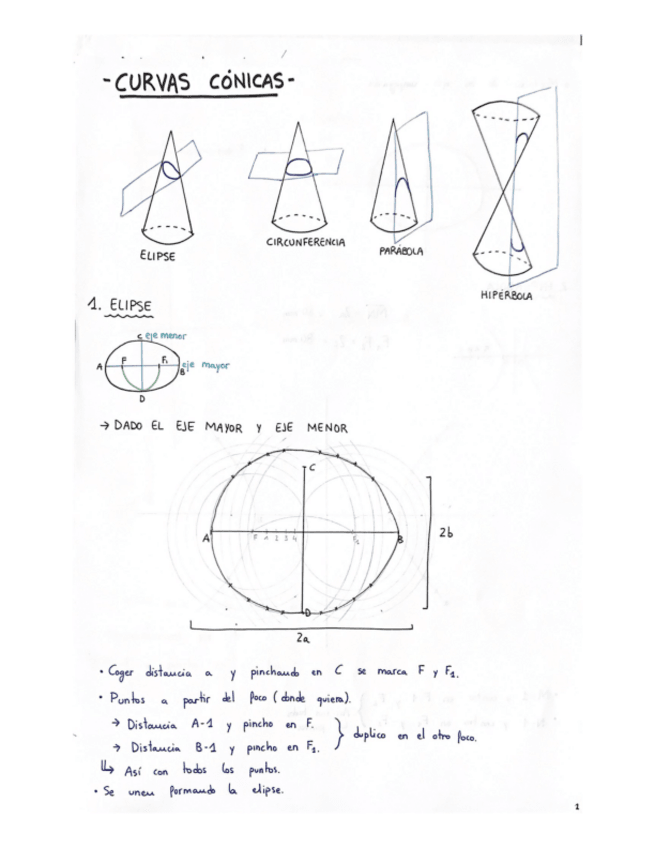 - CURVAS CÓNICAS -
ELIPSE
CIRCUNFERENCIA
PARÁBOLA
HIPÉRBOLA
1. ELIPSE
C eje menor
A F F₁ B eje mayor
D
→ DADO EL EJE MAYOR Y EJE MENOR
C
A F 1 2 3 4 F₁ B
2b
D
2a
• Coger distancia a y pinchando en C se marca F y F₁.
• Puntos a partir del foco (donde quiera).
→ Distancia A-1 y pincho en F.
→ Distancia B-1 y pincho en F₁.
} duplico en el otro foco.
↳ Así con todos los puntos.
• Se unen formando la elipse.
1